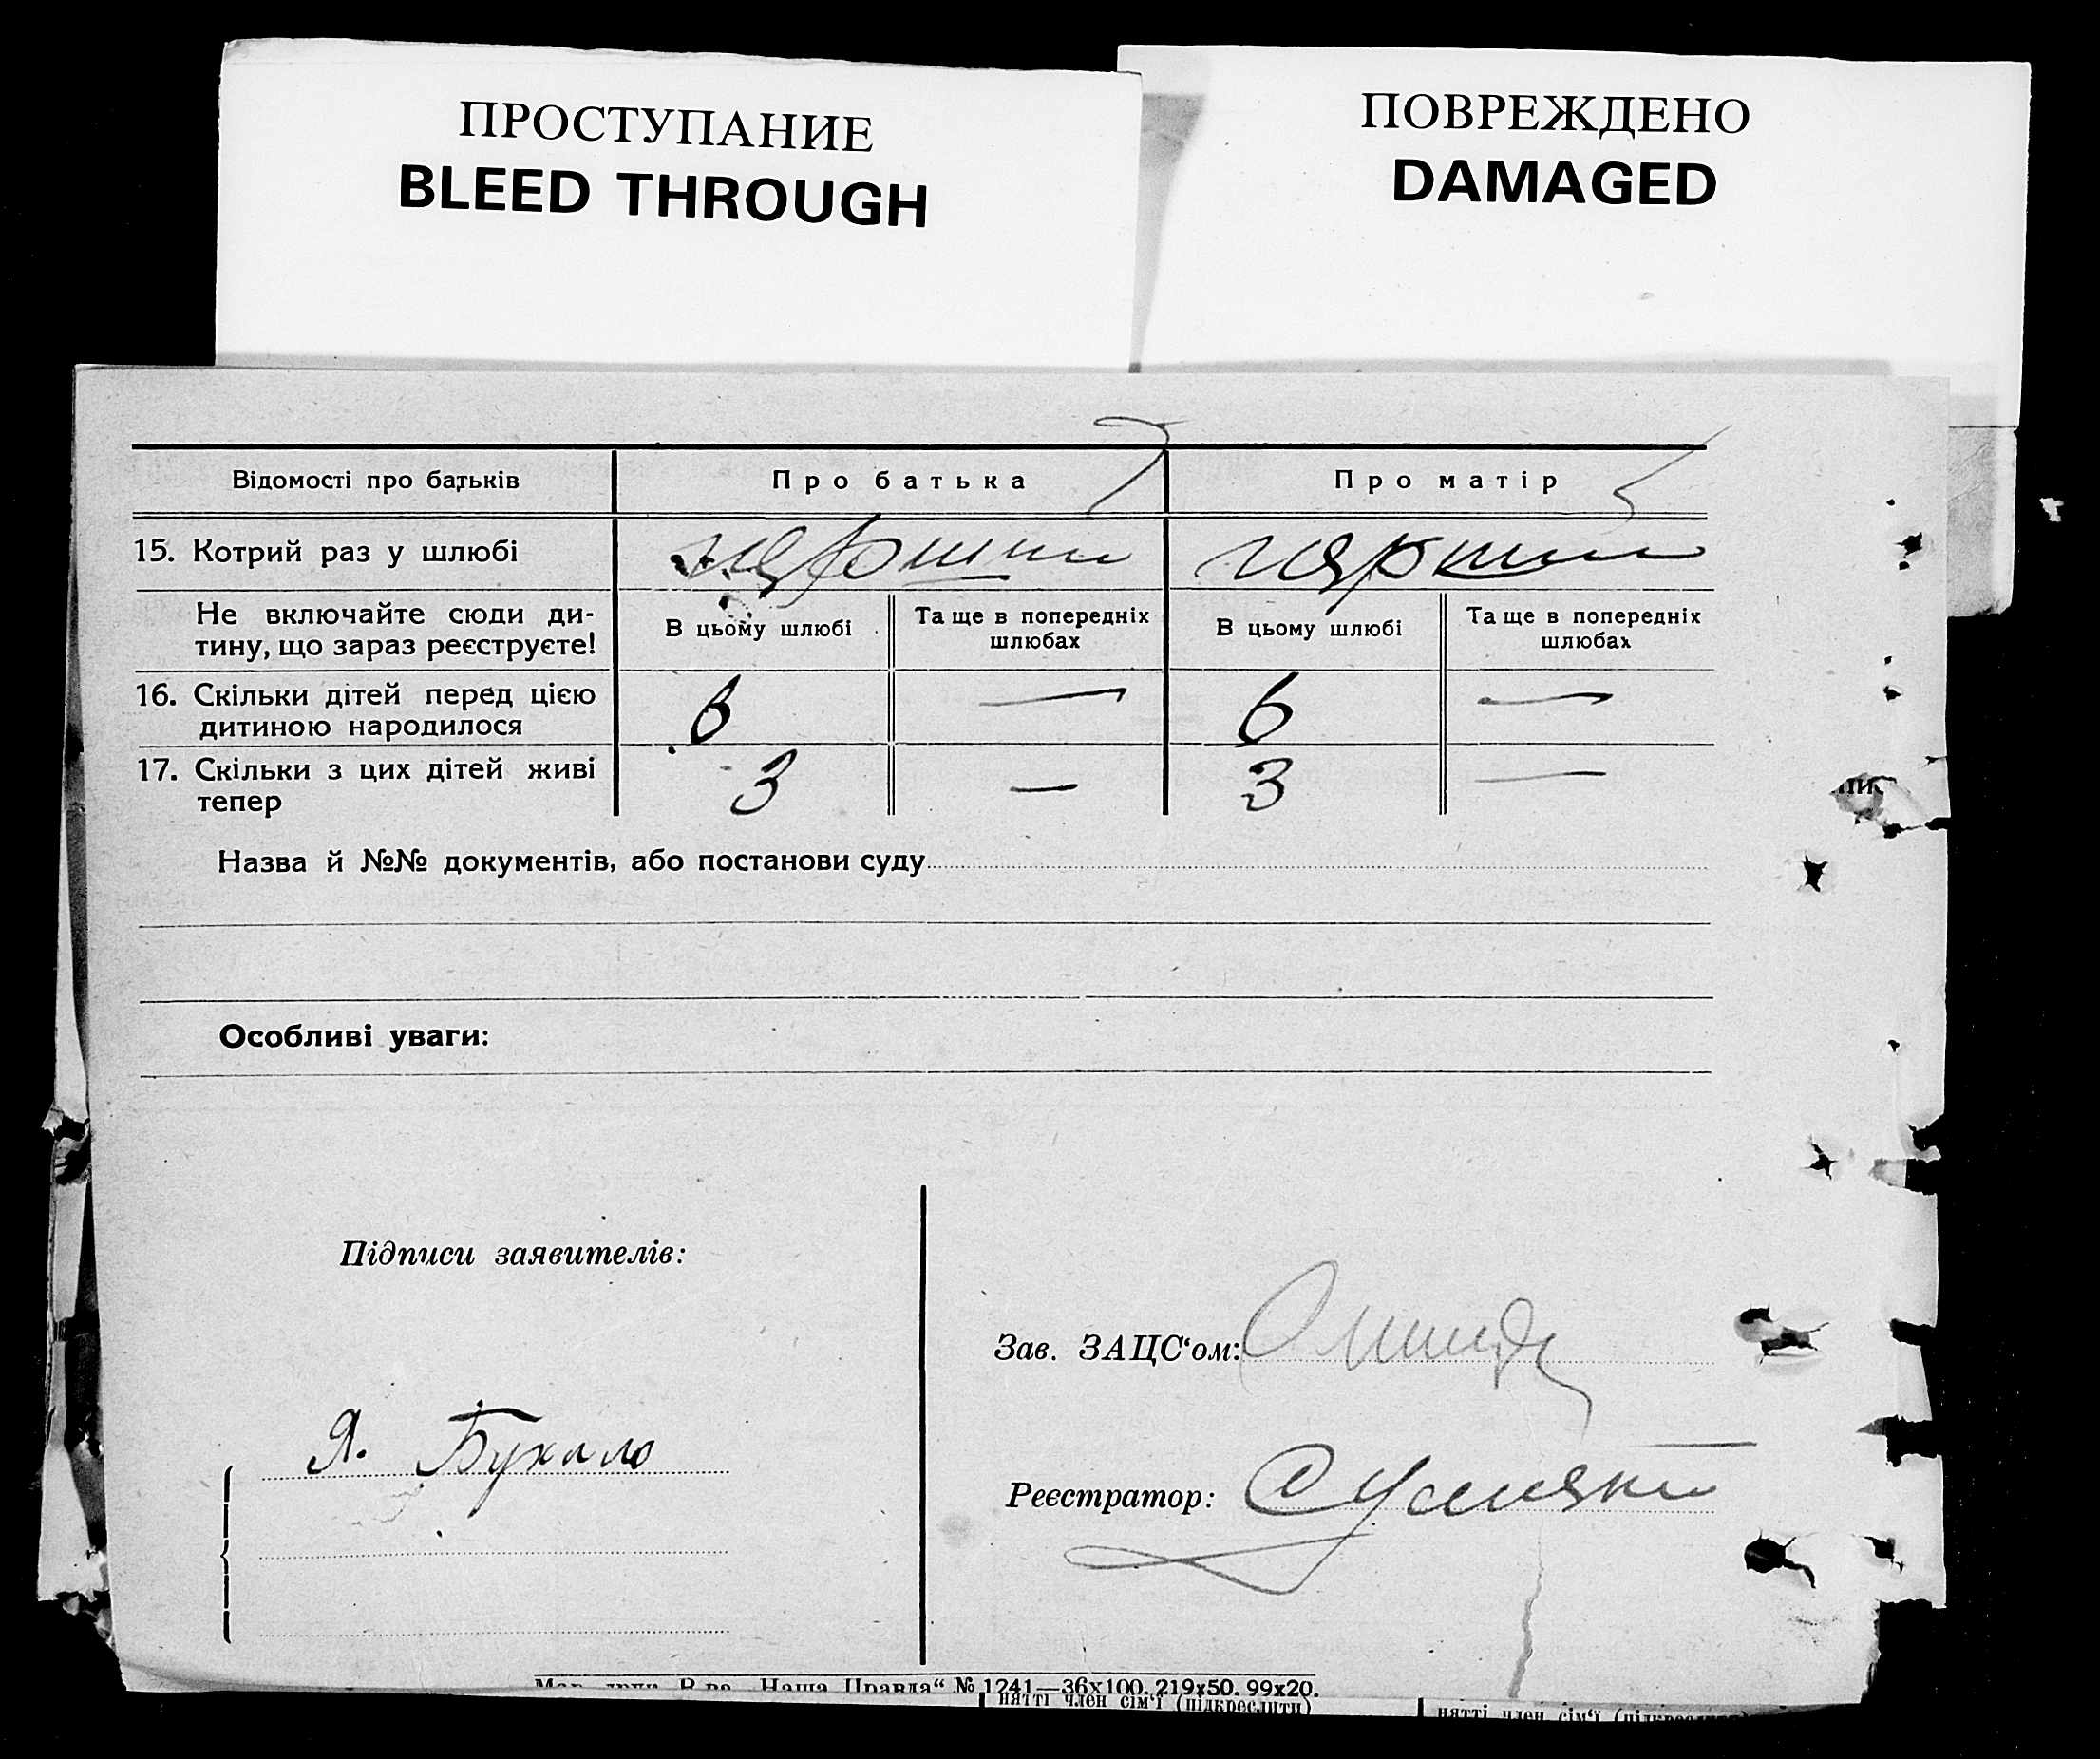 ПРОСТУПАНИЕ
BLEED THROUGH
ПОВРЕЖДЕНО
DAMAGED
Відомості про батьків Про батька Про матір
15. Котрий раз у шлюбі
Не включайте сюди ди-
тину, що зараз реєструєте!
В цьому шлюбі
Та ще в попередніх
шлюбах
В цьому шлюбі
Та ще в попередніх
шлюбах
16. Скільки дітей перед цією
дитиною народилося
6 — 6 —
17. Скільки з цих дітей живі
тепер
3 — 3 —
Назва й №№ документів, або постанови суду
Особливі уваги:
Підписи заявителів:
Я. Бухало
Зав. ЗАЦС‘ом:
Реєстратор:
„Наша Правда“ № 1241—36х100. 219х50. 99х20.
нятті член сім‘ї (підкреслити)
нятті член сім‘ї